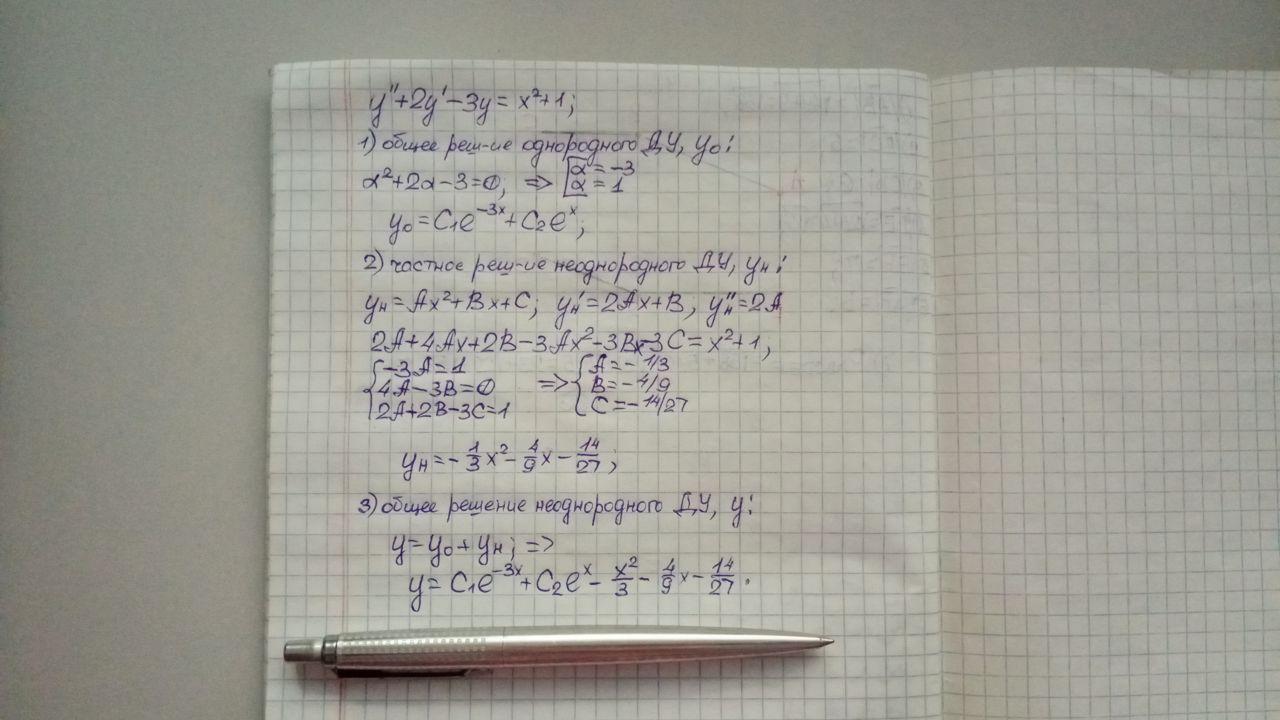 y''+2y'−3y = x²+1;
1) общее реш-ие однородного ДУ, y₀:
α²+2α−3=0; => [α = −3
[α = 1
y₀ = C₁e⁻³ˣ + C₂eˣ;
2) частное реш-ие неоднородного ДУ, yн:
yн = Ax²+Bx+C; yн' = 2Ax+B, yн'' = 2A
2A+4Ax+2B−3Ax²−3Bx−3C = x²+1,
{−3A=1 => {A=−1/3
4A−3B=0 B=−4/9
2A+2B−3C=1 C=−14/27
yн = −1/3 x² − 4/9 x − 14/27;
3) общее решение неоднородного ДУ, y:
y = y₀ + yн; =>
y = C₁e⁻³ˣ + C₂eˣ − x²/3 − 4/9 x − 14/27.